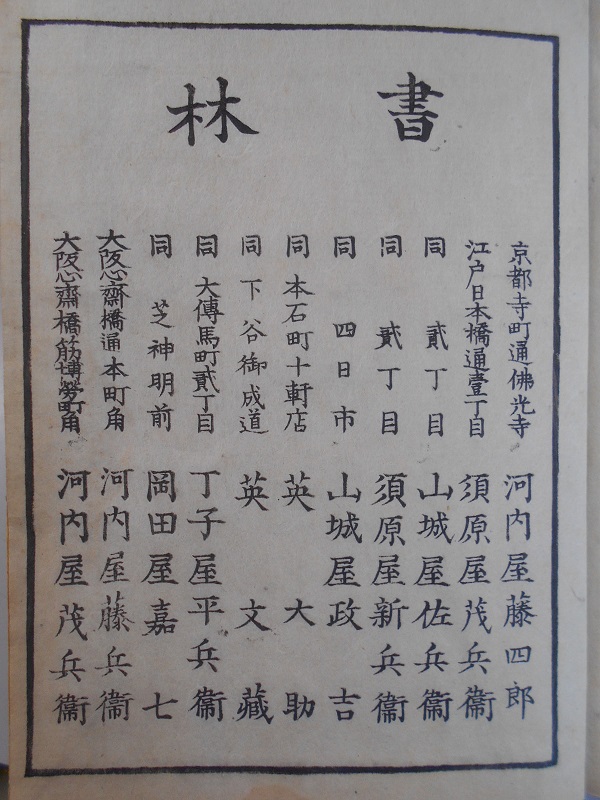 書林
京都寺町通佛光寺 河内屋藤四郎
江戸日本橋通壹丁目 須原屋茂兵衞
同 貳丁目 山城屋佐兵衞
同 貳丁目 須原屋新兵衞
同 四日市 山城屋政吉
同 本石町十軒店 英大助
同 下谷御成道 英文藏
同 大傳馬町貳丁目 丁子屋平兵衞
同 芝神明前 岡田屋嘉七
大阪心齋橋通本町角 河内屋藤兵衞
大阪心齋橋筋博勞町角 河内屋茂兵衞